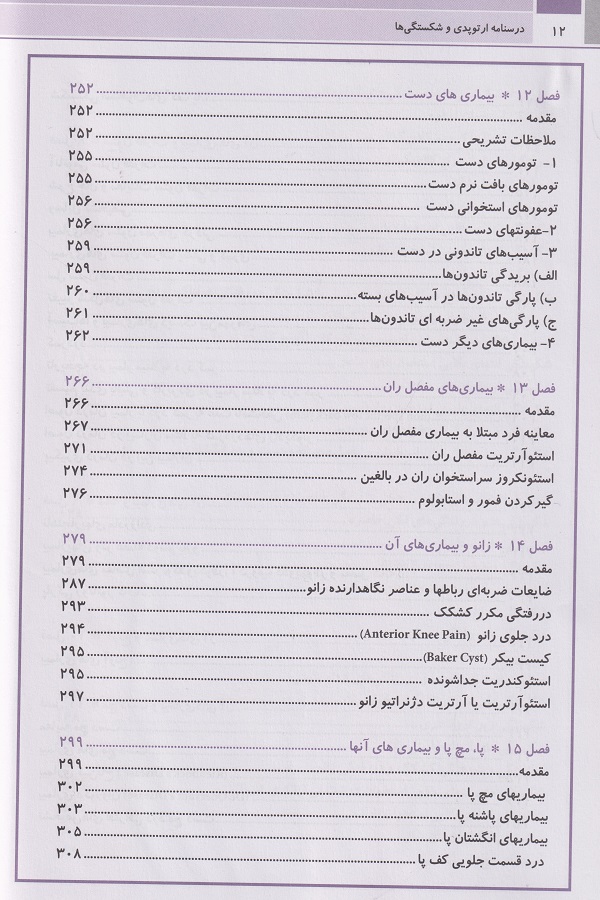 ۱۲ درسنامه ارتوپدی و شکستگی‌ها
فصل ۱۲ * بیماری های دست ۲۵۲
مقدمه ۲۵۲
ملاحظات تشریحی ۲۵۲
۱- تومورهای دست ۲۵۵
تومورهای بافت نرم دست ۲۵۵
تومورهای استخوانی دست ۲۵۶
۲-عفونتهای دست ۲۵۶
۳- آسیب‌های تاندونی در دست ۲۵۹
الف) بریدگی تاندون‌ها ۲۵۹
ب) پارگی تاندون‌ها در آسیب‌های بسته ۲۶۰
ج) پارگی‌های غیر ضربه ای تاندون‌ها ۲۶۱
۴- بیماری‌های دیگر دست ۲۶۲
فصل ۱۳ * بیماری‌های مفصل ران ۲۶۶
مقدمه ۲۶۶
معاینه فرد مبتلا به بیماری مفصل ران ۲۶۷
استئوآرتریت مفصل ران ۲۷۱
استئونکروز سراستخوان ران در بالغین ۲۷۴
گیرکردن فمور و استابولوم ۲۷۶
فصل ۱۴ * زانو و بیماری‌های آن ۲۷۹
مقدمه ۲۷۹
ضایعات ضربه‌ای رباطها و عناصر نگاهدارنده زانو ۲۸۷
دررفتگی مکرر کشکک ۲۹۳
درد جلوی زانو (Anterior Knee Pain) ۲۹۴
کیست بیکر (Baker Cyst) ۲۹۵
استئوکندریت جداشونده ۲۹۵
استئوآرتریت یا آرتریت دژنراتیو زانو ۲۹۷
فصل ۱۵ * پا، مچ پا و بیماری های آنها ۲۹۹
مقدمه ۲۹۹
بیماریهای مچ پا ۳۰۲
بیماریهای پاشنه پا ۳۰۳
بیماریهای انگشتان پا ۳۰۵
درد قسمت جلویی کف پا ۳۰۸